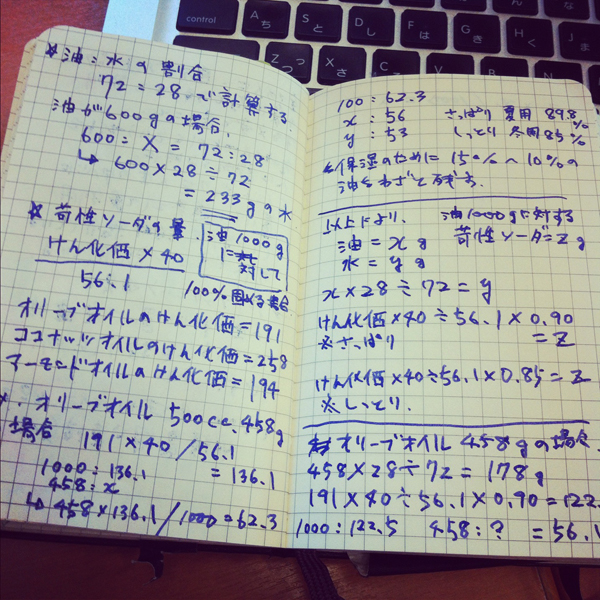 control
A ち
S と
D し
F は
G き
H く
Z つ
X さ
C
☆油:水の割合
72:28で計算する
油が600gの場合、
600:X = 72:28
↳ 600×28÷72
= 233gの水
☆ 苛性ソーダの量
けん化価×40
56.1
油1000g
に対して
100%固める場合
オリーブオイルのけん化価=191
ココナッツオイルのけん化価=258
アーモンドオイルのけん化価=194
オリーブオイル 500cc、458g
場合 191×40/56.1
= 136.1
1000:136.1
458:x
↳ 458×136.1/1000=62.3
100:62.3
x:56 さっぱり 夏用 89.8%
y:53 しっとり 冬用 85%
保湿のために 15%〜10%の
油をわざと残す。
以上により、
油1000gに対する
苛性ソーダ=Zg
油=xg
水=yg
x×28÷72=y
けん化価×40÷56.1×0.90
=Z
※さっぱり
けん化価×40÷56.1×0.85=Z
※しっとり。
オリーブオイル 458gの場合
458×28÷72=178g
191×40÷56.1×0.90=122.
1000:122.5 458:? =56.1